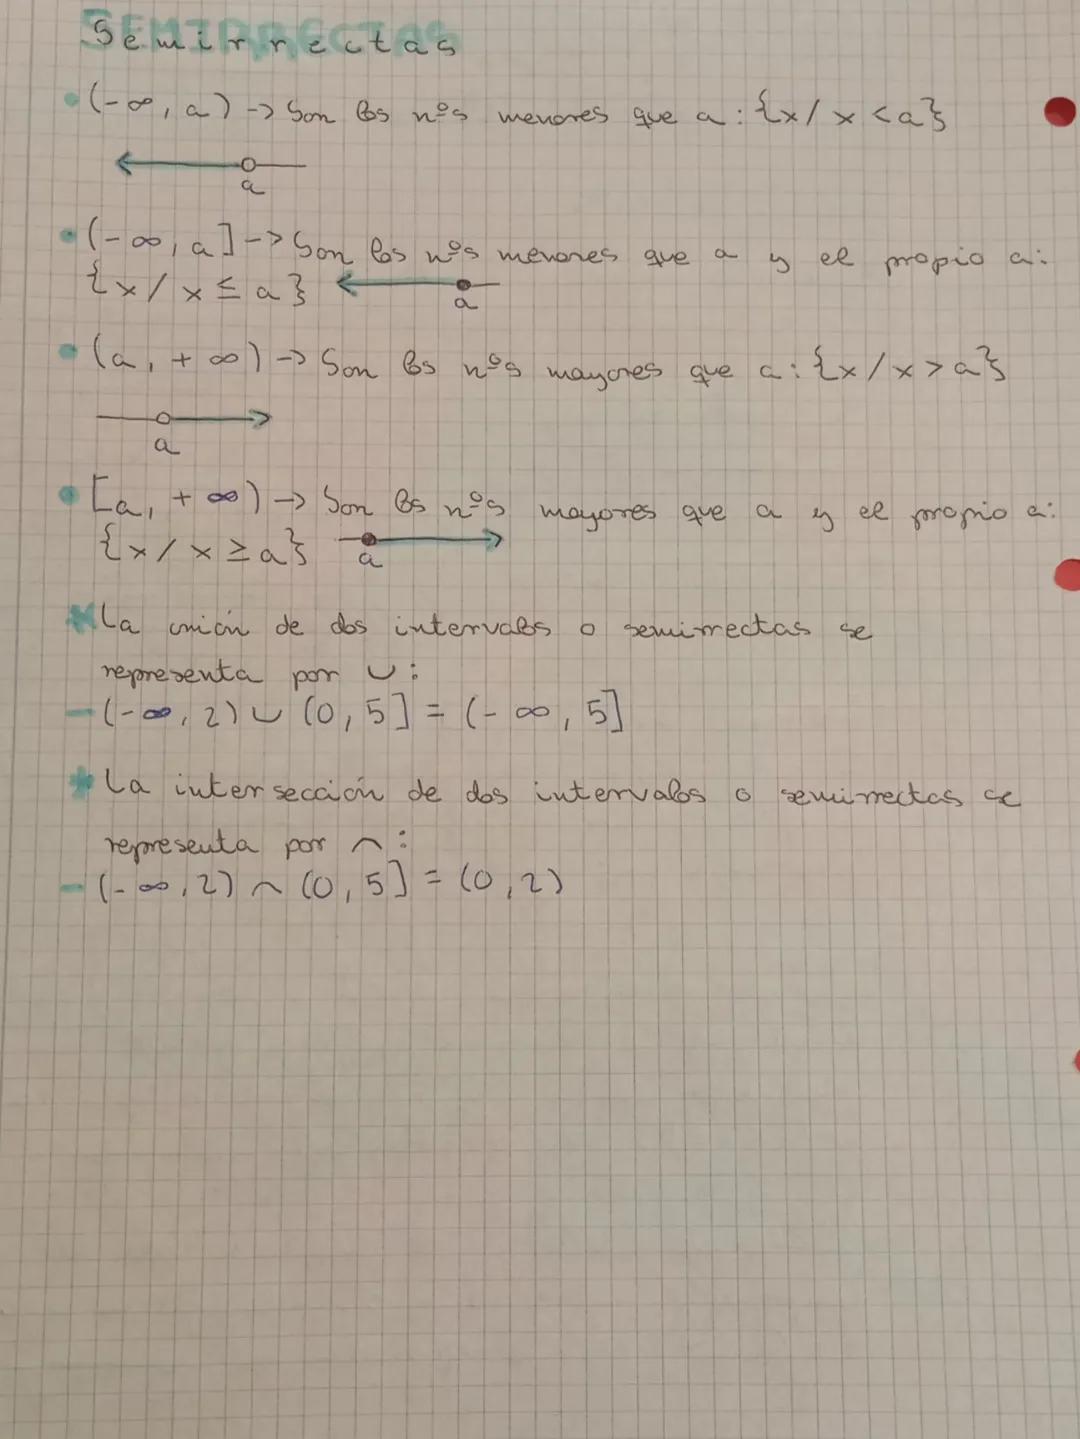 Semirrectas
(-∞, a) -> Son los nºs menores que a: {x/ x < a}
a
(-∞, a] -> Son los nºs menores que a y el propio a:
{x/ x ≤ a}
a
(a, + ∞) -> Son los nºs mayores que a: {x/ x > a}
a
[a, + ∞) -> Son los nºs mayores que a y el propio a:
{x/ x ≥ a}
a
* La unión de dos intervalos o semirrectas se
representa por ∪:
- (-∞, 2) ∪ (0, 5] = (-∞, 5]
* La intersección de dos intervalos o semirrectas se
representa por ∩:
- (-∞, 2) ∩ (0, 5] = (0, 2)